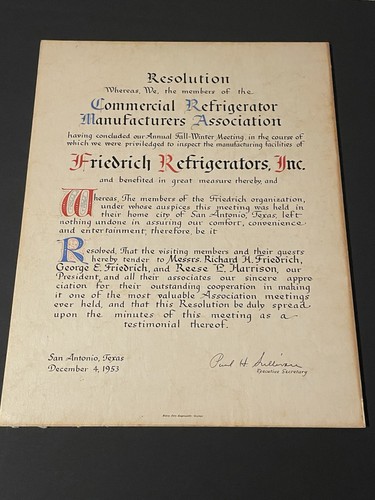 Resolution
Whereas, We, the members of the
Commercial Refrigerator
Manufacturers Association
having concluded our Annual Fall-Winter Meeting, in the course of
which we were priviledged to inspect the manufacturing facilities of
Friedrich Refrigerators, Inc.
and benefited in great measure thereby, and
Whereas, The members of the Friedrich organization,
under whose auspices this meeting was held in
their home city of San Antonio, Texas, left
nothing undone in assuring our comfort, convenience
and entertainment, therefore, be it
Resolved, That the visiting members and their guests
hereby tender to Messrs. Richard H. Friedrich,
George E. Friedrich, and Reese L. Harrison, our
President, and all their associates our sincere appre
ciation for their outstanding cooperation in making
it one of the most valuable Association meetings
ever held, and that this Resolution be duly spread
upon the minutes of this meeting as a
testimonial thereof.
San Antonio, Texas
December 4, 1953
Paul H Sullivan
Executive Secretary